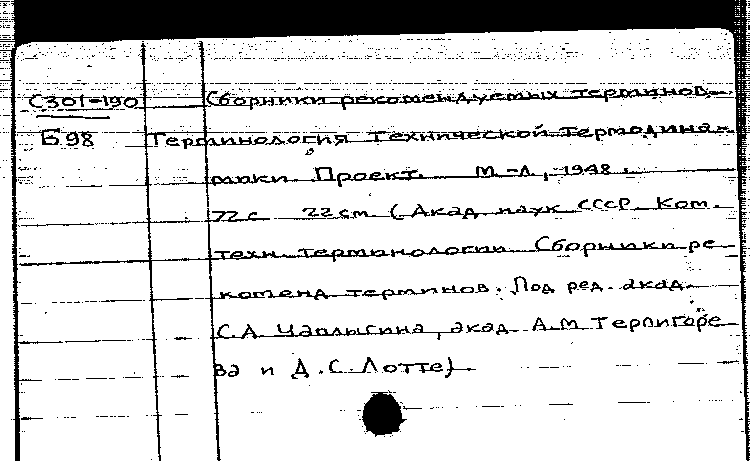 С301-190 Сборники рекомендуемых терминов.
Б98 Терминология технической термодина-
мики. Проект. М-Л, 1948.
72 с 22 см. (Акад. наук СССР. Ком.
техн. терминологии. Сборники ре-
коменд. терминов. Под ред. акад.
С.А. Чаплыгина, акад. А.М. Терпигоре
ва и Д.С. Лотте).